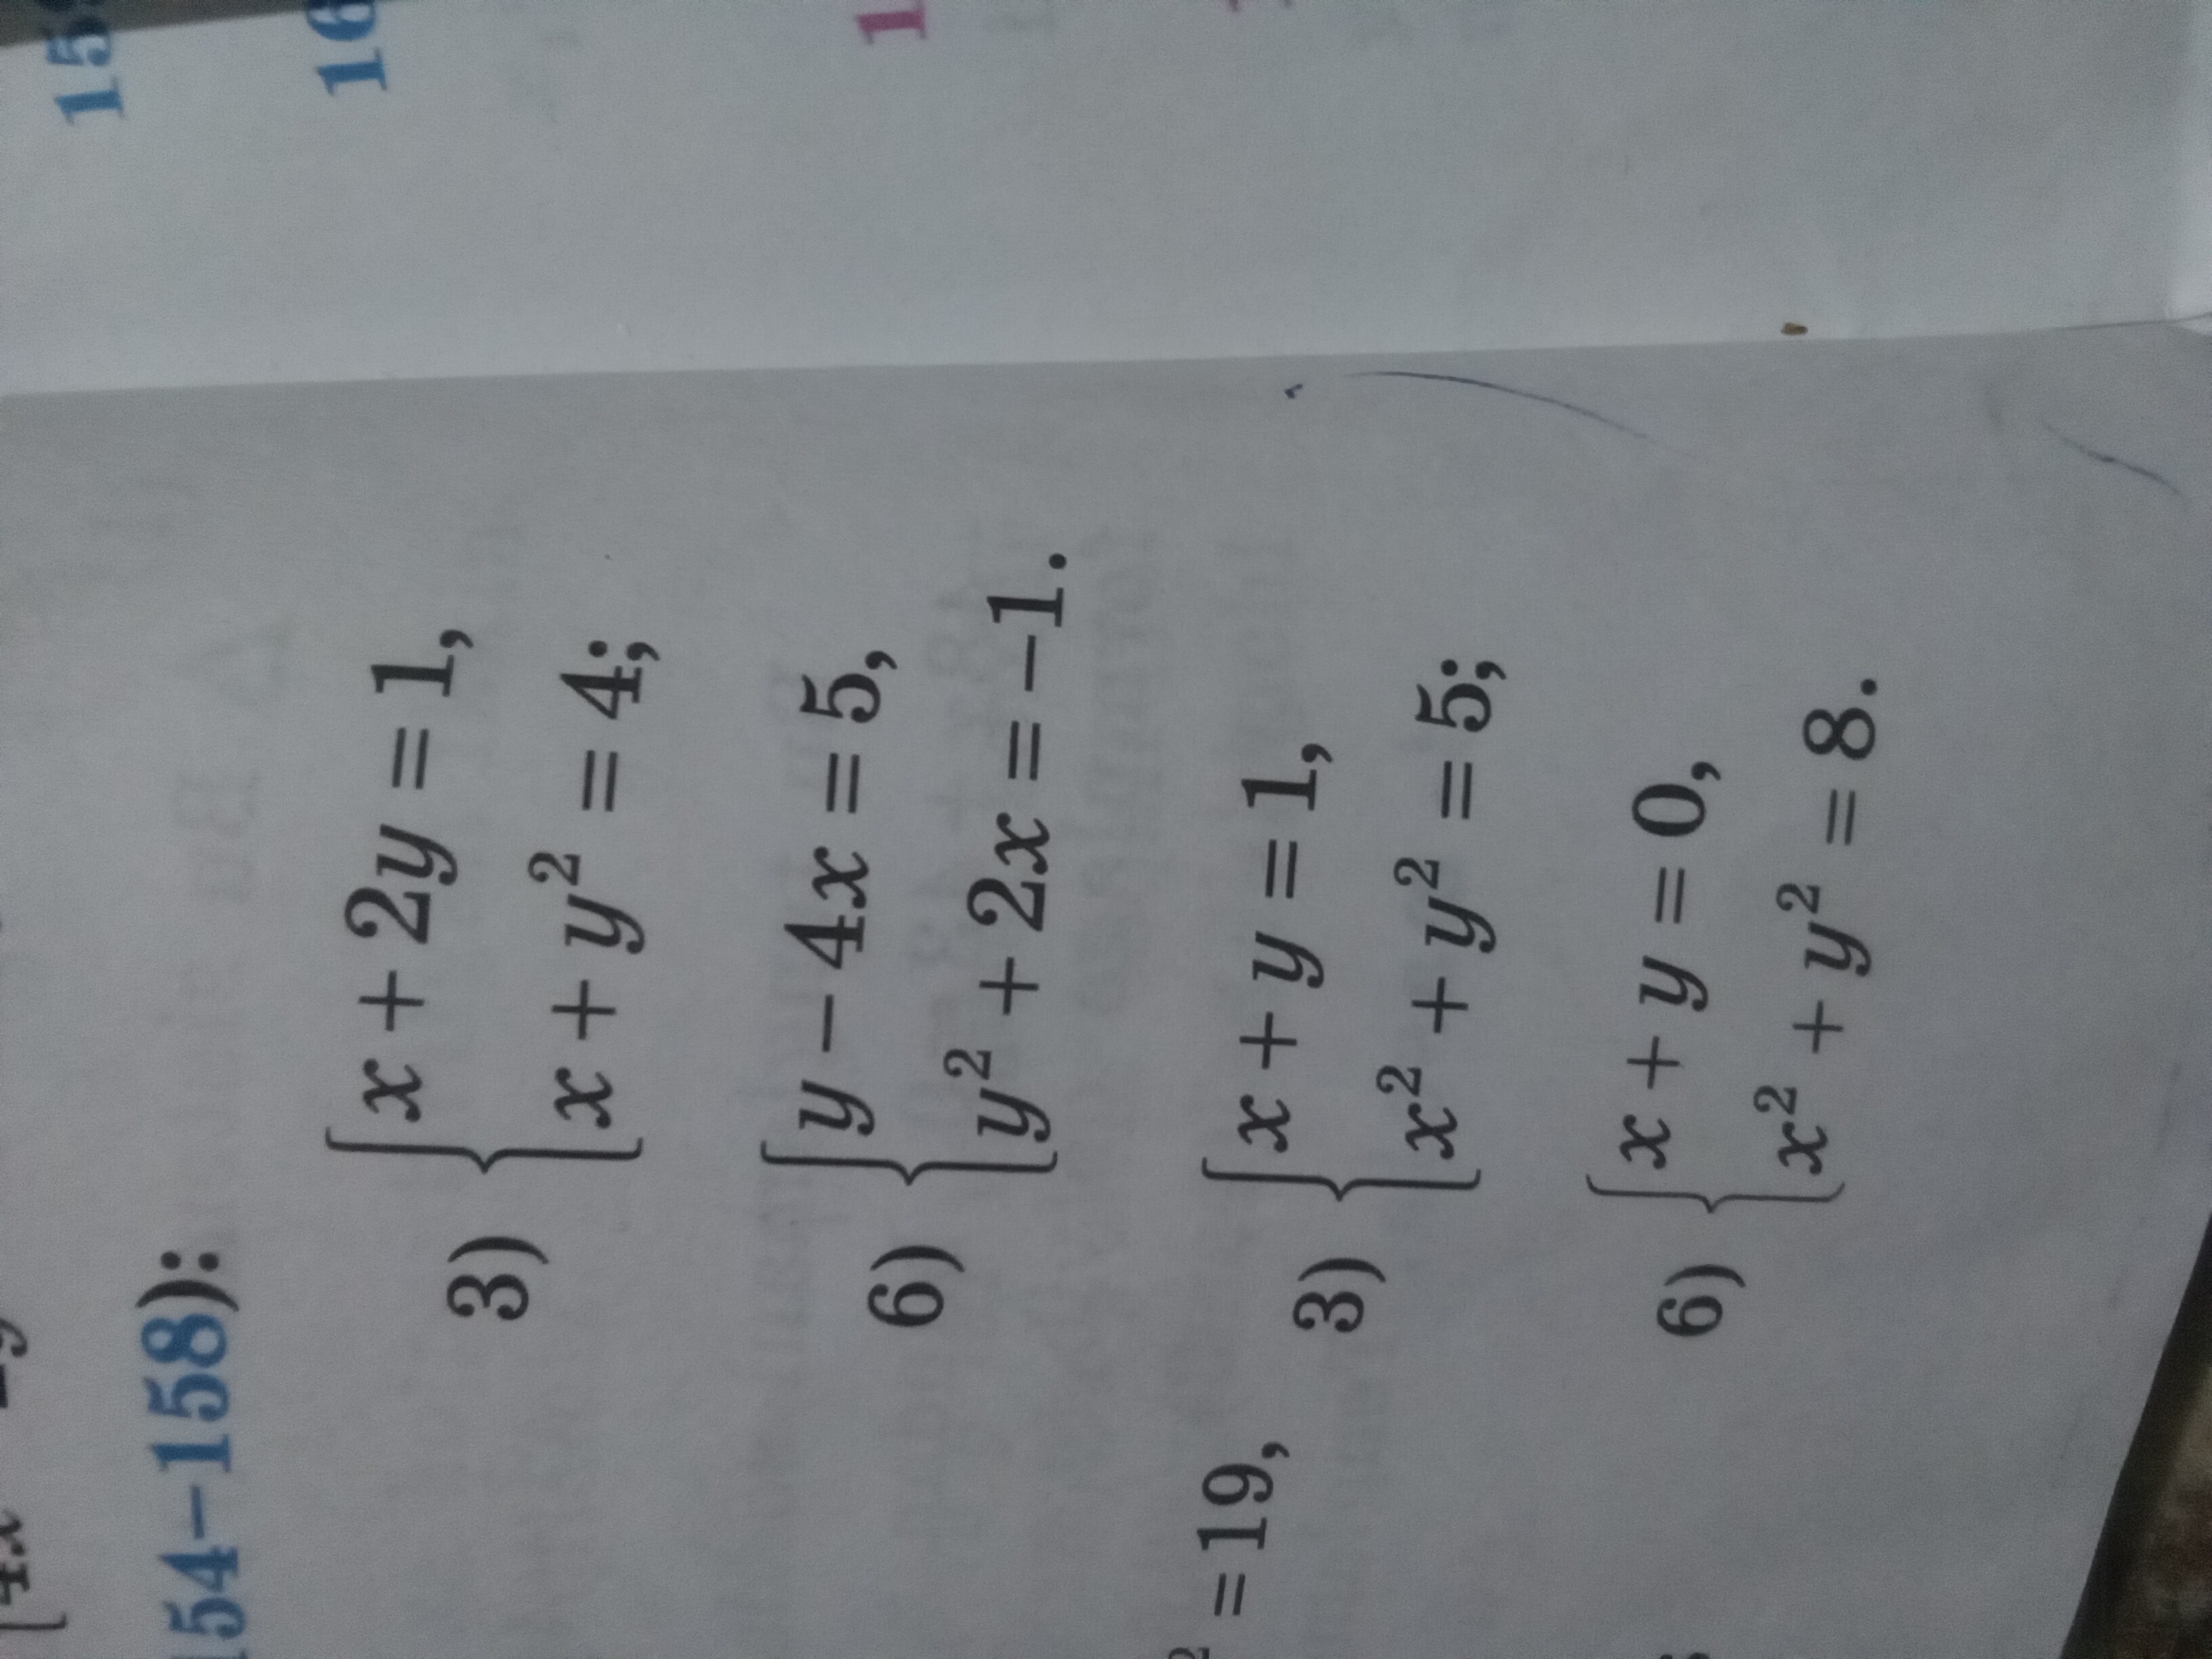 154–158):
3) { x + 2y = 1,
x + y² = 4;
6) { y − 4x = 5,
y² + 2x = −1.
² = 19,
3) { x + y = 1,
x² + y² = 5;
6) { x + y = 0,
x² + y² = 8.